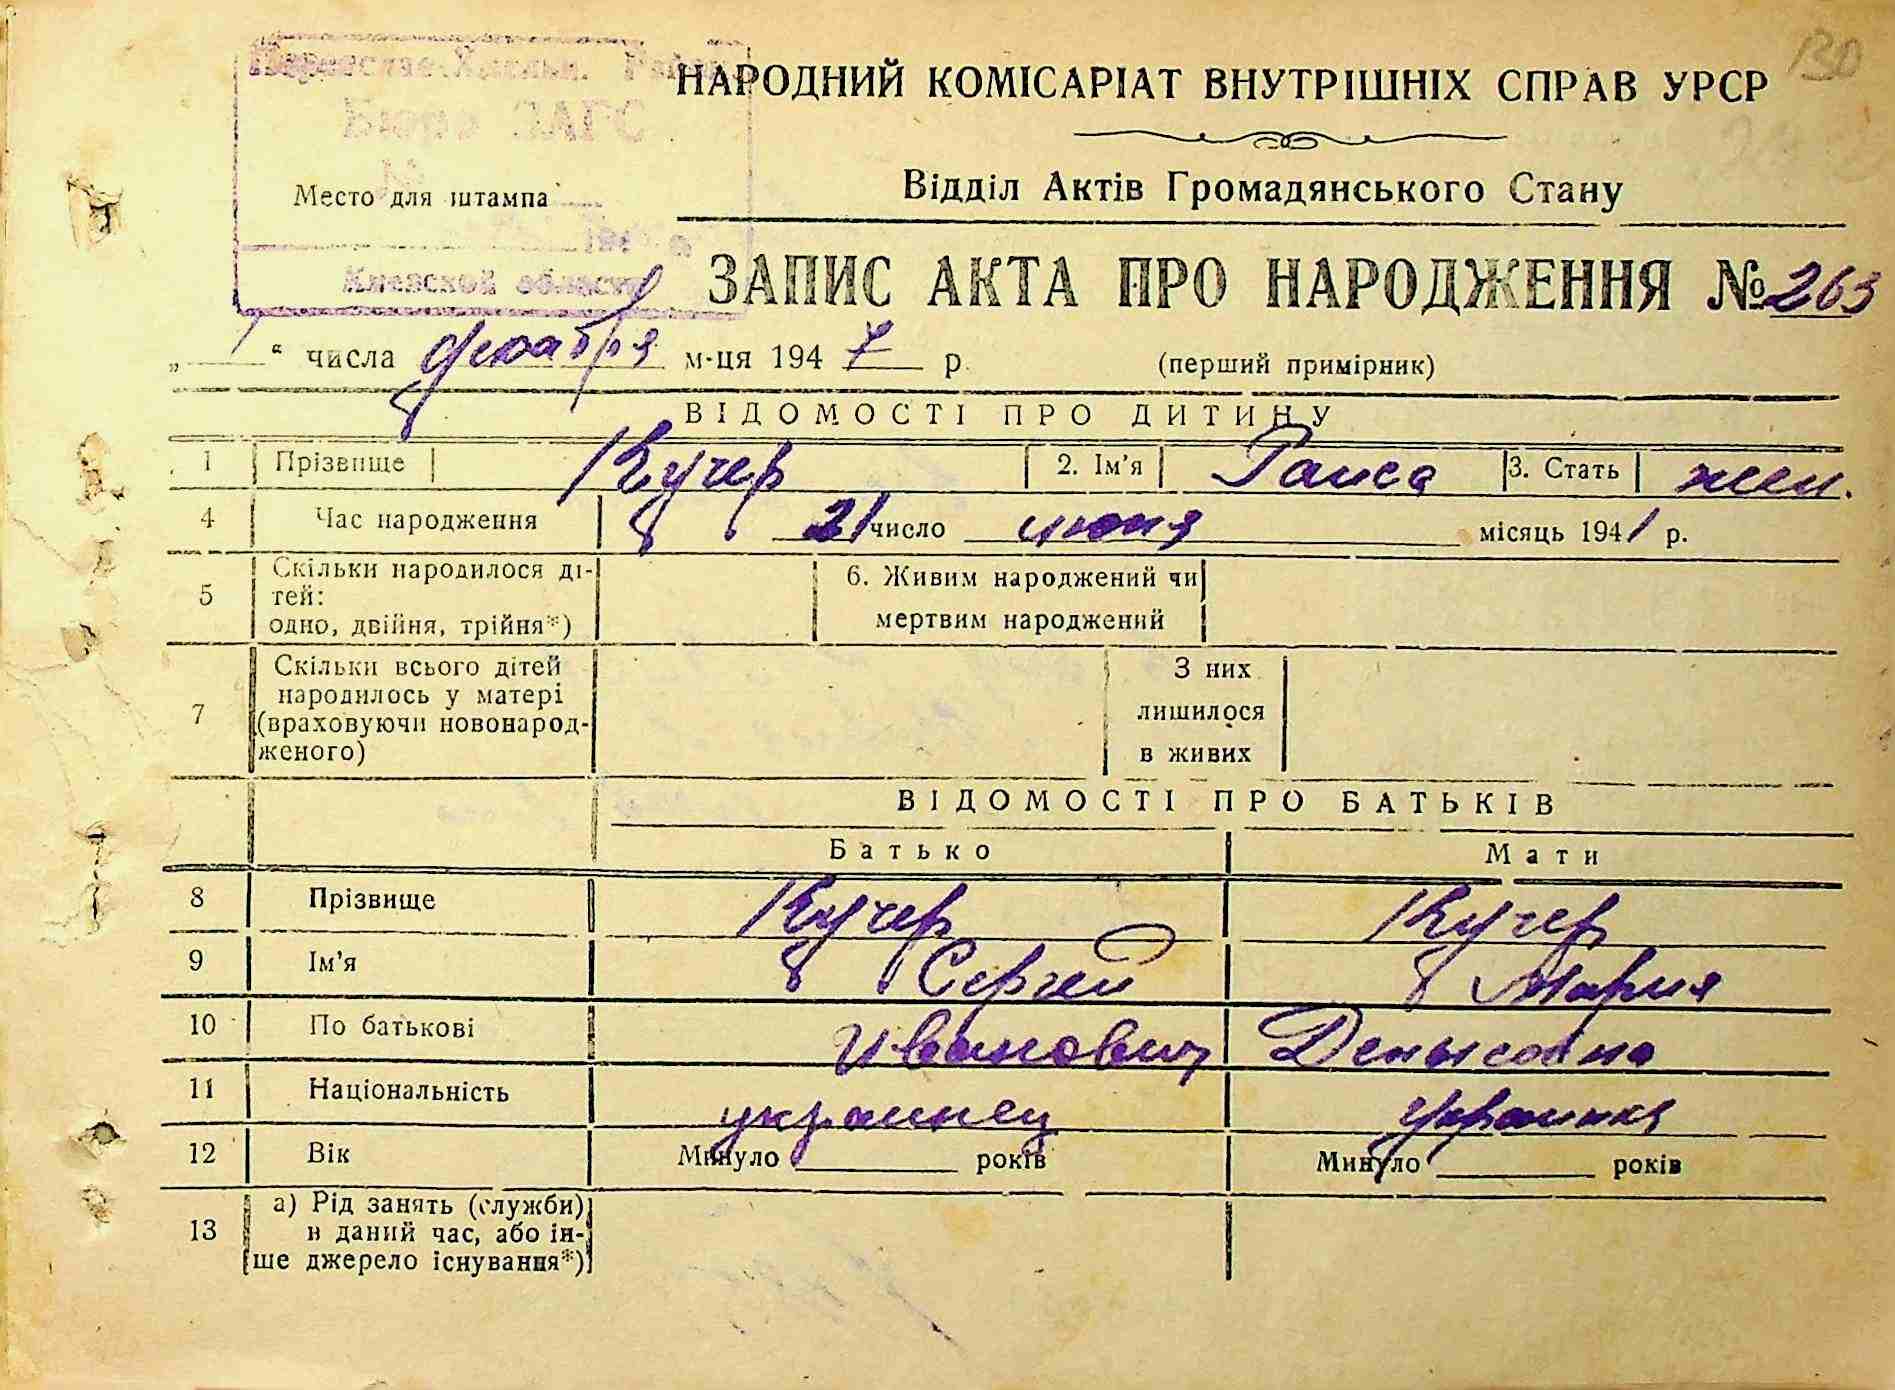 130
Бюро ЗАГС
НАРОДНИЙ КОМІСАРІАТ ВНУТРІШНІХ СПРАВ УРСР
Место для штампа
Відділ Актів Громадянського Стану
Киевской области
ЗАПИС АКТА ПРО НАРОДЖЕННЯ № 263
„ 1 “ числа декабря м-ця 1947 р.
(перший примірник)
ВІДОМОСТІ ПРО ДИТИНУ
1 Прізвище Кучер 2. Ім’я Раиса 3. Стать жен.
4 Час народження 21 число июня місяць 1941 р.
5 Скільки народилося ді-
тей:
одно, двійня, трійня*)
6. Живим народжений чи
мертвим народжений
7 Скільки всього дітей
народилось у матері
(враховуючи новонарод-
женого)
З них
лишилося
в живих
ВІДОМОСТІ ПРО БАТЬКІВ
Батько Мати
8 Прізвище Кучер Кучер
9 Ім’я Сергей Мария
10 По батькові Иванович Денысовна
11 Національність украинец украинка
12 Вік Минуло ____ років Минуло ____ років
13 а) Рід занять (служби)
в даний час, або ін-
ше джерело існування*)